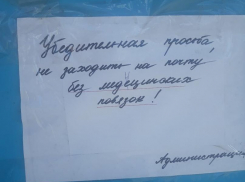 Убедительная просьба
не заходить на почту
без медецинских
повязок!
Администрация